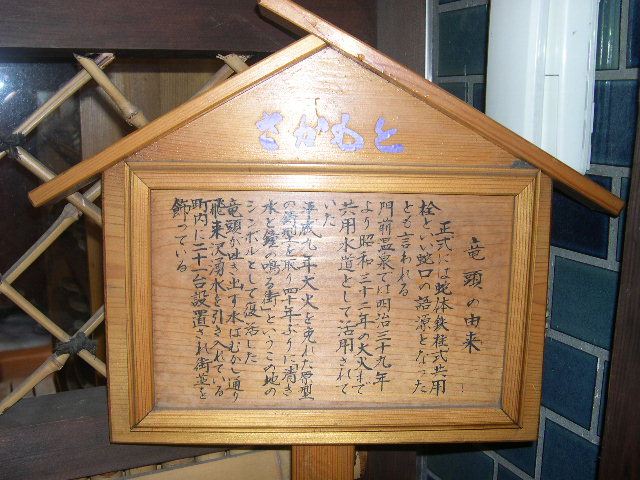 さかもと
竜頭の由来
正式には蛇体鉄柱式共用
栓といい蛇口の語源となった
とも言われる
門前温泉では明治三十九年
より昭和三十二年の大火まで
共用水道として活用されて
いた
平成九年大火を免れた原型
の鋳型を取り四十年ぶりに清き
水と鐘の鳴る街というこの地の
シンボルとして復活した
竜頭が吐き出す水はむかし通り
飛来沢湧水を引き入れている
町内に二十一台設置され街並を
飾っている